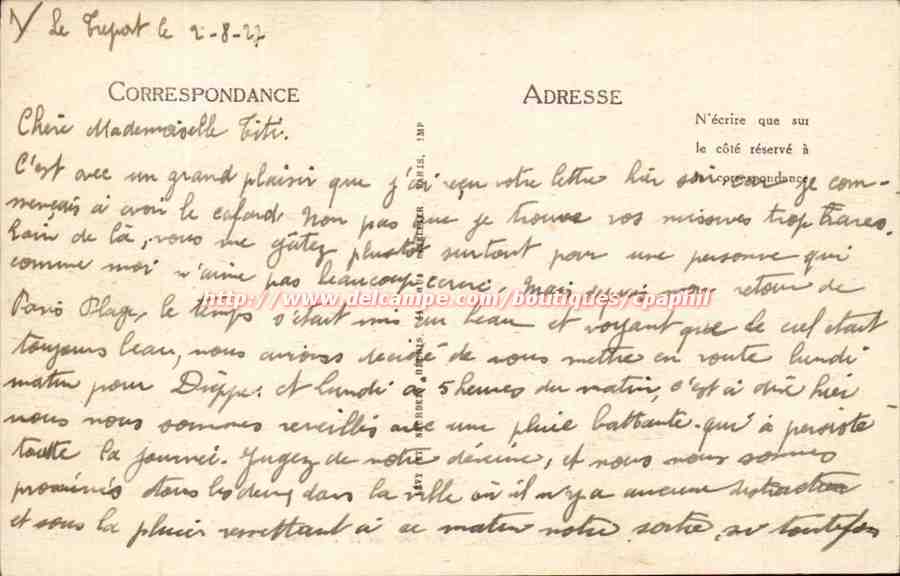 Le Treport le 2-8-27
CORRESPONDANCE
ADRESSE
N'écrire que sur
le côté réservé à
la correspondance
Chere Mademoiselle Titi.
C'est avec un grand plaisir que j'ai reçu votre lettre hier soir car je com-
mençais à avoir le cafard. Non pas que je trouve vos missives trop rares.
Loin de là, vous me gâtez plustôt surtout pour une personne qui
comme moi n'aime pas beaucoup ecrire. Mais depuis mon retour de
www.delcampe.com/boutiques/cpaphil
Paris Plage, le temps s'était mis au beau et voyant que le ciel était
toujours beau, nous avions decidé de nous mettre en route lundi
matin pour Dieppe. et lundi à 5 heures du matin, c'est à dire hier
nous nous sommes reveillés avec une pluie battante qui à persisté
toutte la journée. Jugez de notre déveine, et nous nous sommes
promenés tous les deux dans la ville où il n'y a aucune distraction
et sous la pluie remettant à ce matin notre sortie, si toutefois
LÉVY ET NEURDEIN RÉUNIS, 44, PARIS, IMP